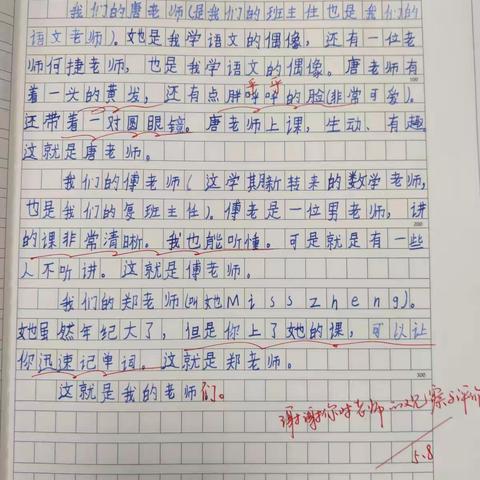 我们的唐老师(是我们的班主任也是我们的
语文老师)。她是我学语文的偶像，还有一位老
师何捷老师，也是我学语文的偶像。唐老师有
乎乎
着一头的黄发，还有点胖呼呼的脸(非常可爱)。
还带着一对圆眼镜。唐老师上课，生动、有趣。
这就是唐老师。
我们的傅老师(这学期新转来的数学老师,
也是我们的复班主任)。傅老是一位男老师，讲
的课非常清晰。我也能听懂。可是就是有一些
人不听讲。这就是傅老师。
我们的郑老师(叫她Miss zheng)。
她虽然年纪大了，但是你上了她的课，可以让
你迅速记单词。这就是郑老师。
这就是我的老师们。
谢谢你对老师的观察与评价
5.8
100
200
300